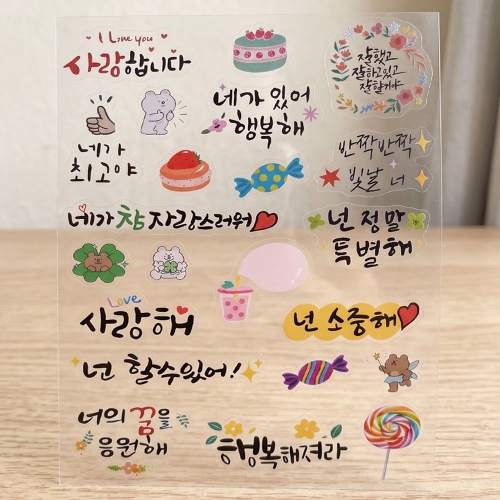 I Love you
사랑합니다
잘했고
잘하고있고
잘할거야
네가 있어
행복해
네가
최고야
반짝반짝
빛날 너
네가 참 자랑스러워
넌 정말
특별해
Love
사랑해
넌 소중해
넌 할수있어!
너의 꿈을
응원해
행복해져라